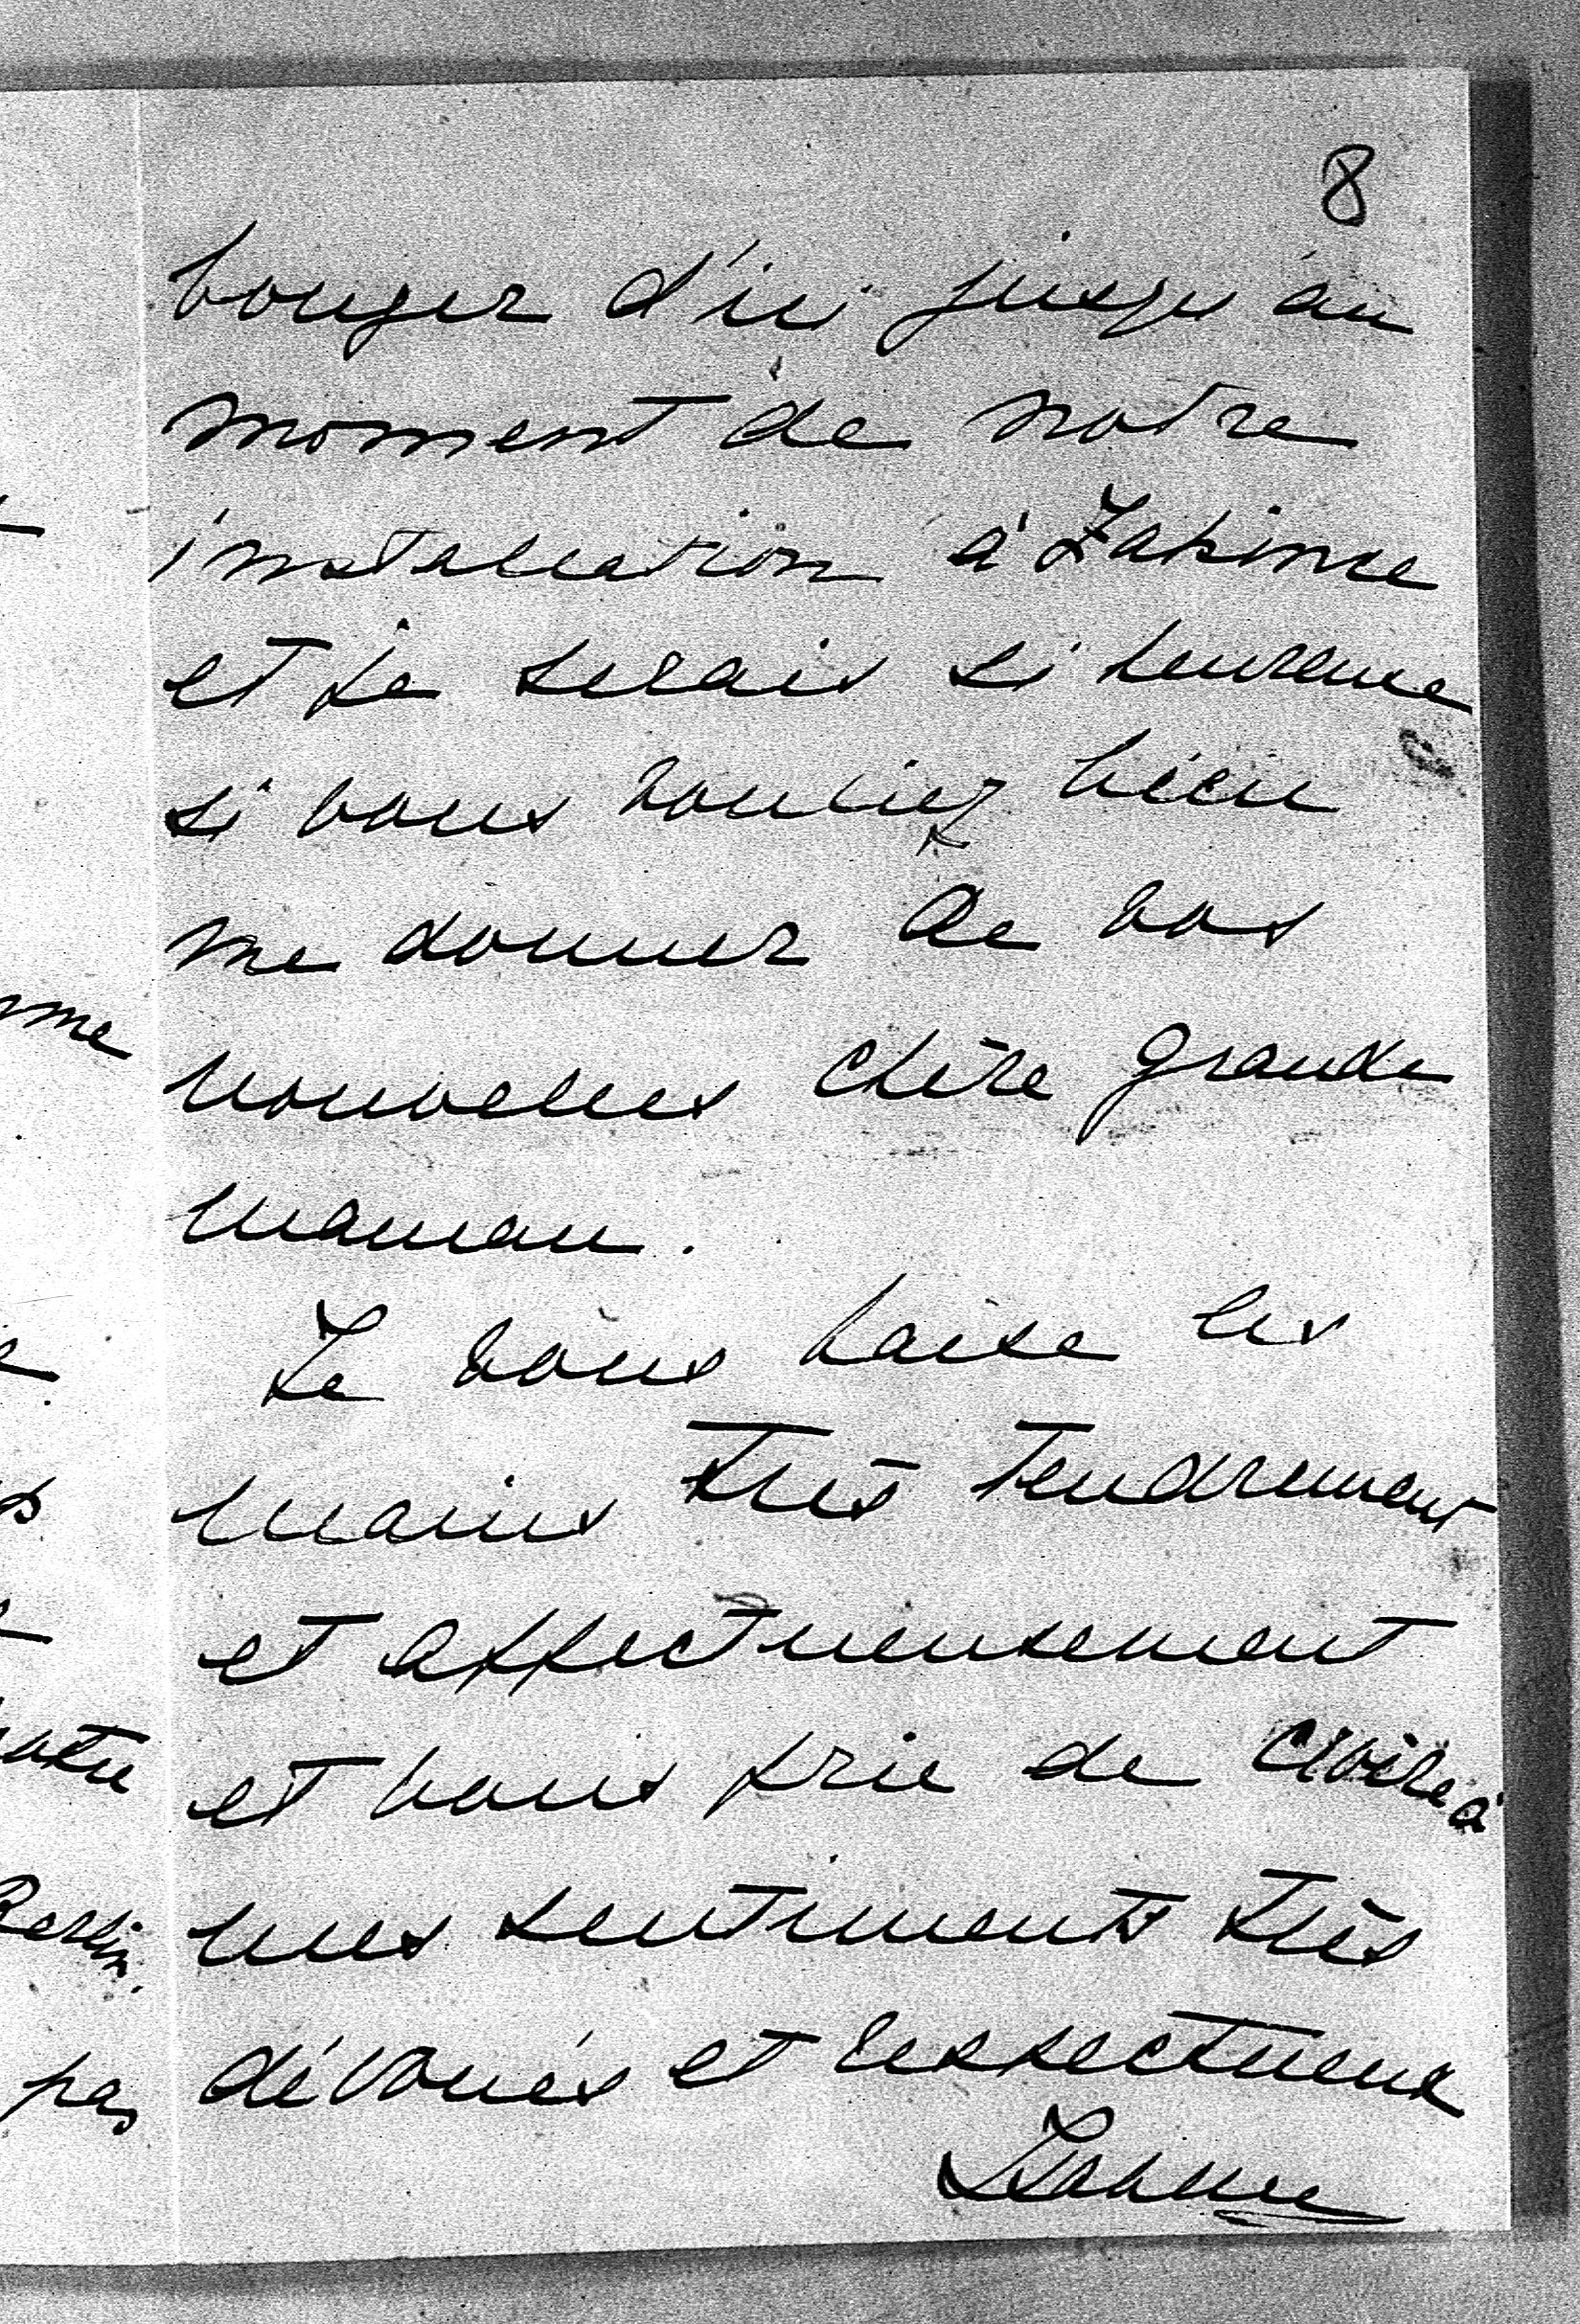 8
bouger d'ici jusqu'au
moment de notre
installation à
et je serais si heureuse
si vous vouliez bien
me donner de vos
nouvelles chère grande
maman.
Je vous baise les
mains très tendrement
et affectueusement
et vous prie de croire à
mes sentiments très
dévoués et respectueux
me
Berlin.
pas